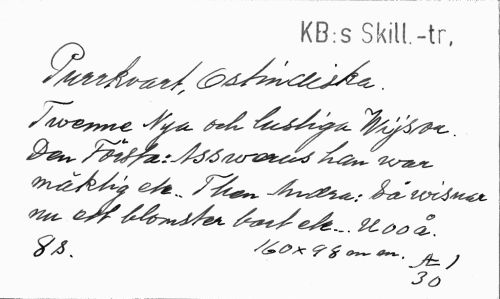 KB:s Skill.-tr,
Purrkvart, Ostindiska.
Twenne Nya och lustiga Wijsor.
Den Första: Asswerus han war
mäktig etc. Then Andra: Så wisnar
nu ett blomster bort etc... U o o å.
8 s. 160 x 98 mm. A 1
30